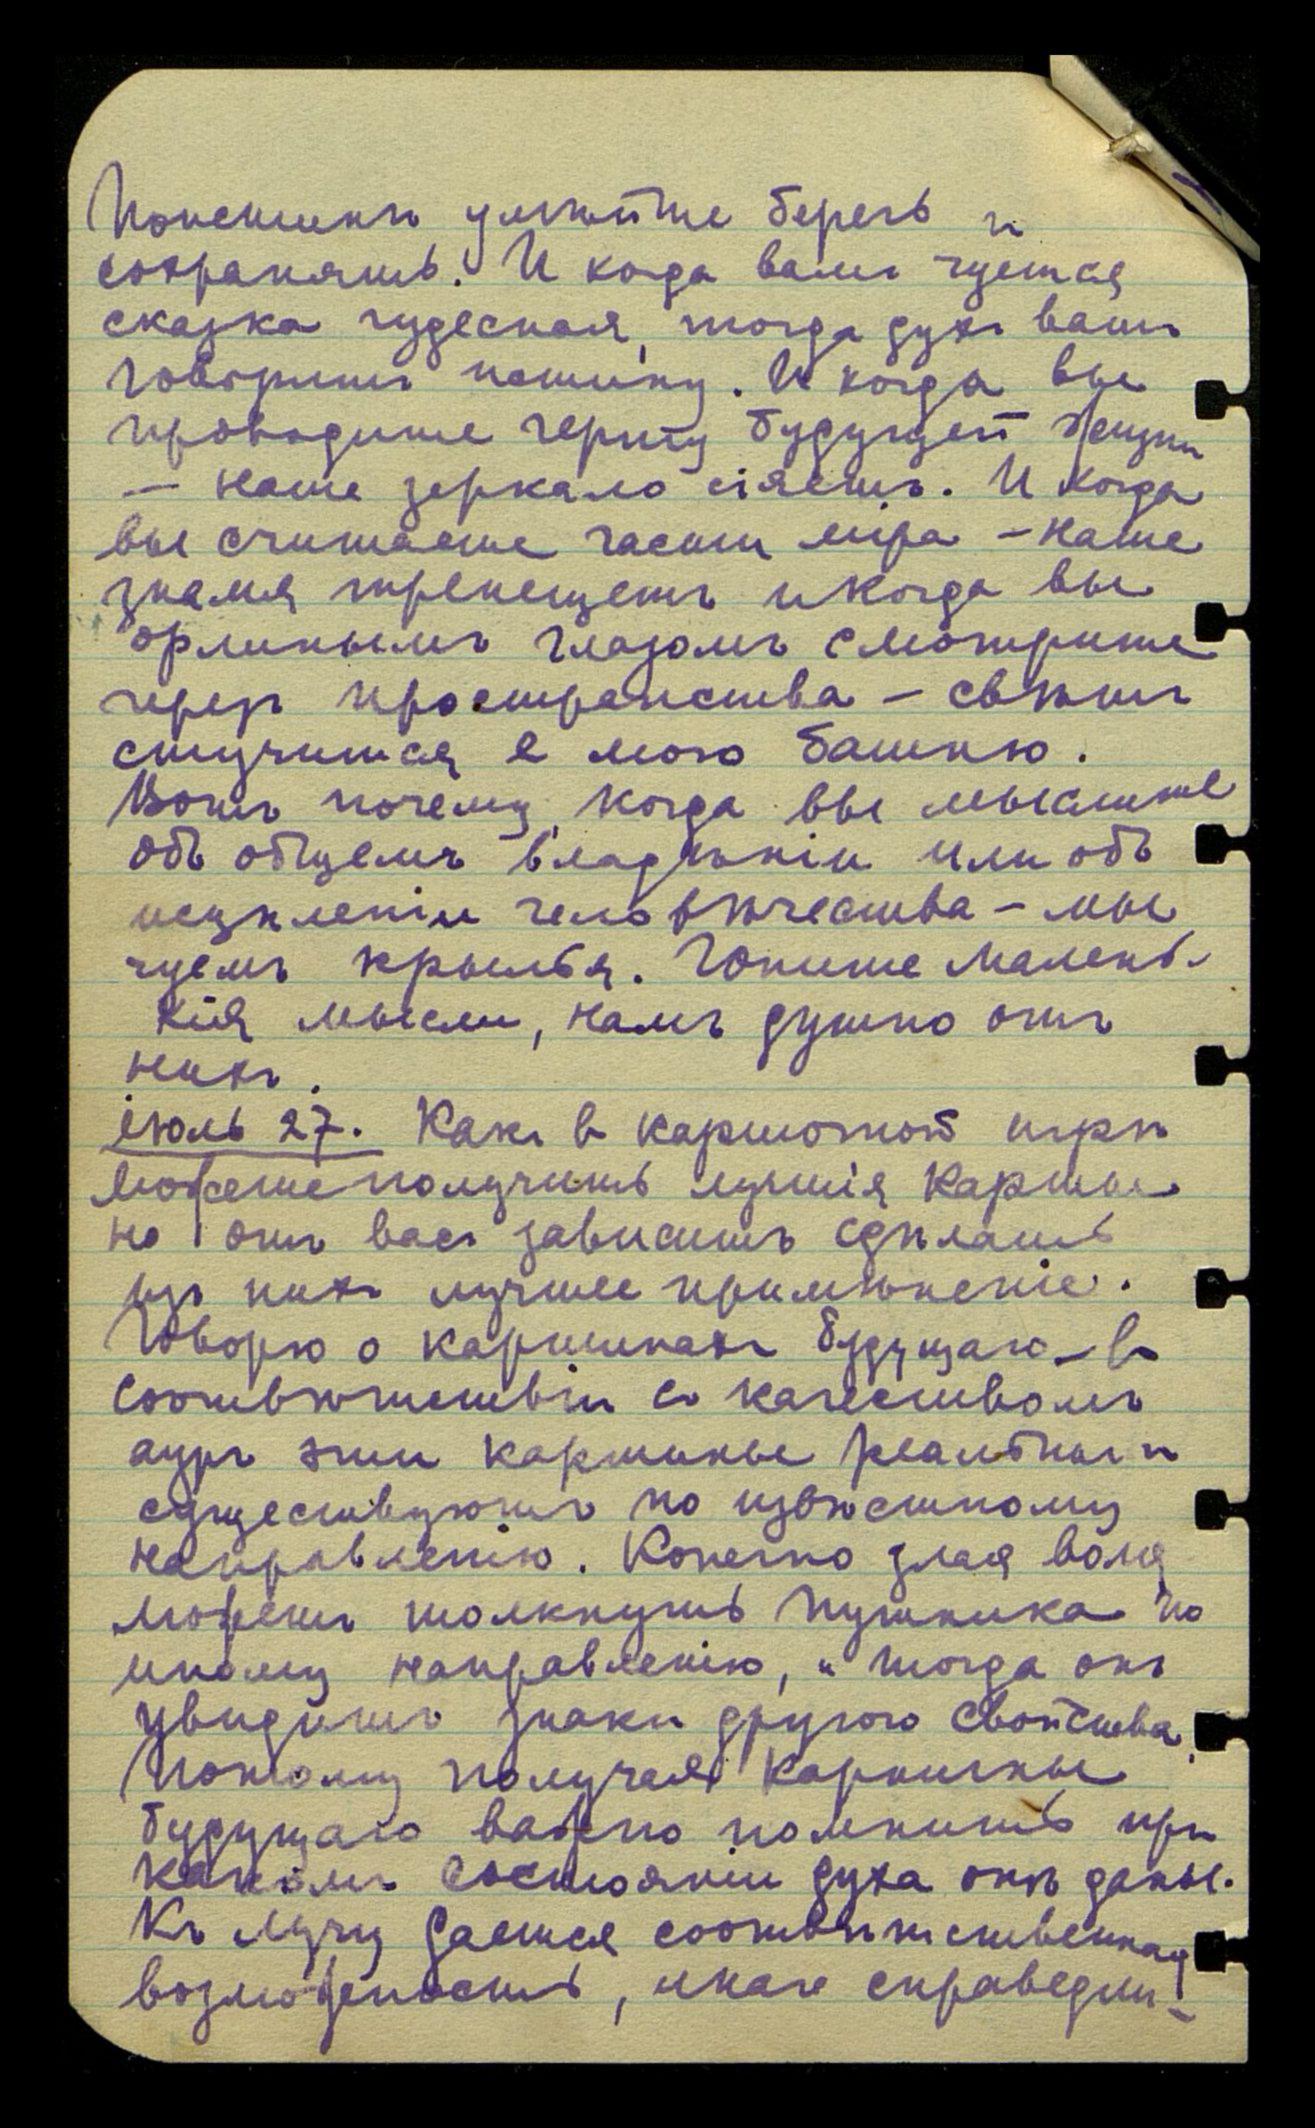 Поистинѣ умѣйте беречь и
сохранять. И когда вамъ чуется
сказка чудесная, тогда духъ вашъ
говоритъ истину. И когда вы
проводите черту будущей жизни
— наше зеркало сіяетъ. И когда
вы считаете части міра — наше
знамя трепещетъ и когда вы
орлинымъ глазомъ смотрите
черезъ пространства — свѣтъ
стучится в мою башню.
Вотъ почему, когда вы мыслите
объ общемъ владѣніи или объ
исцѣленіи человѣчества — мы
чуемъ крылья. Гоните малень-
кія мысли, намъ душно отъ
нихъ.
іюль 27. Какъ в карточной игрѣ
можете получить лучшія карты
но отъ васъ зависитъ сдѣлать
изъ нихъ лучшее примѣненіе.
Говорю о картинахъ будущаго — в
соотвѣтствіи съ качествомъ
ауръ эти картины реальны и
существуютъ по извѣстному
направленію. Конечно злая воля
можетъ толкнуть путника по
иному направленію, и тогда онъ
увидитъ знаки другого свойства.
Потому получая картины
будущаго важно помнить при
какомъ состояніи духа онѣ даны.
Къ лучу дается соотвѣтственная
возможность, иначе справедли-